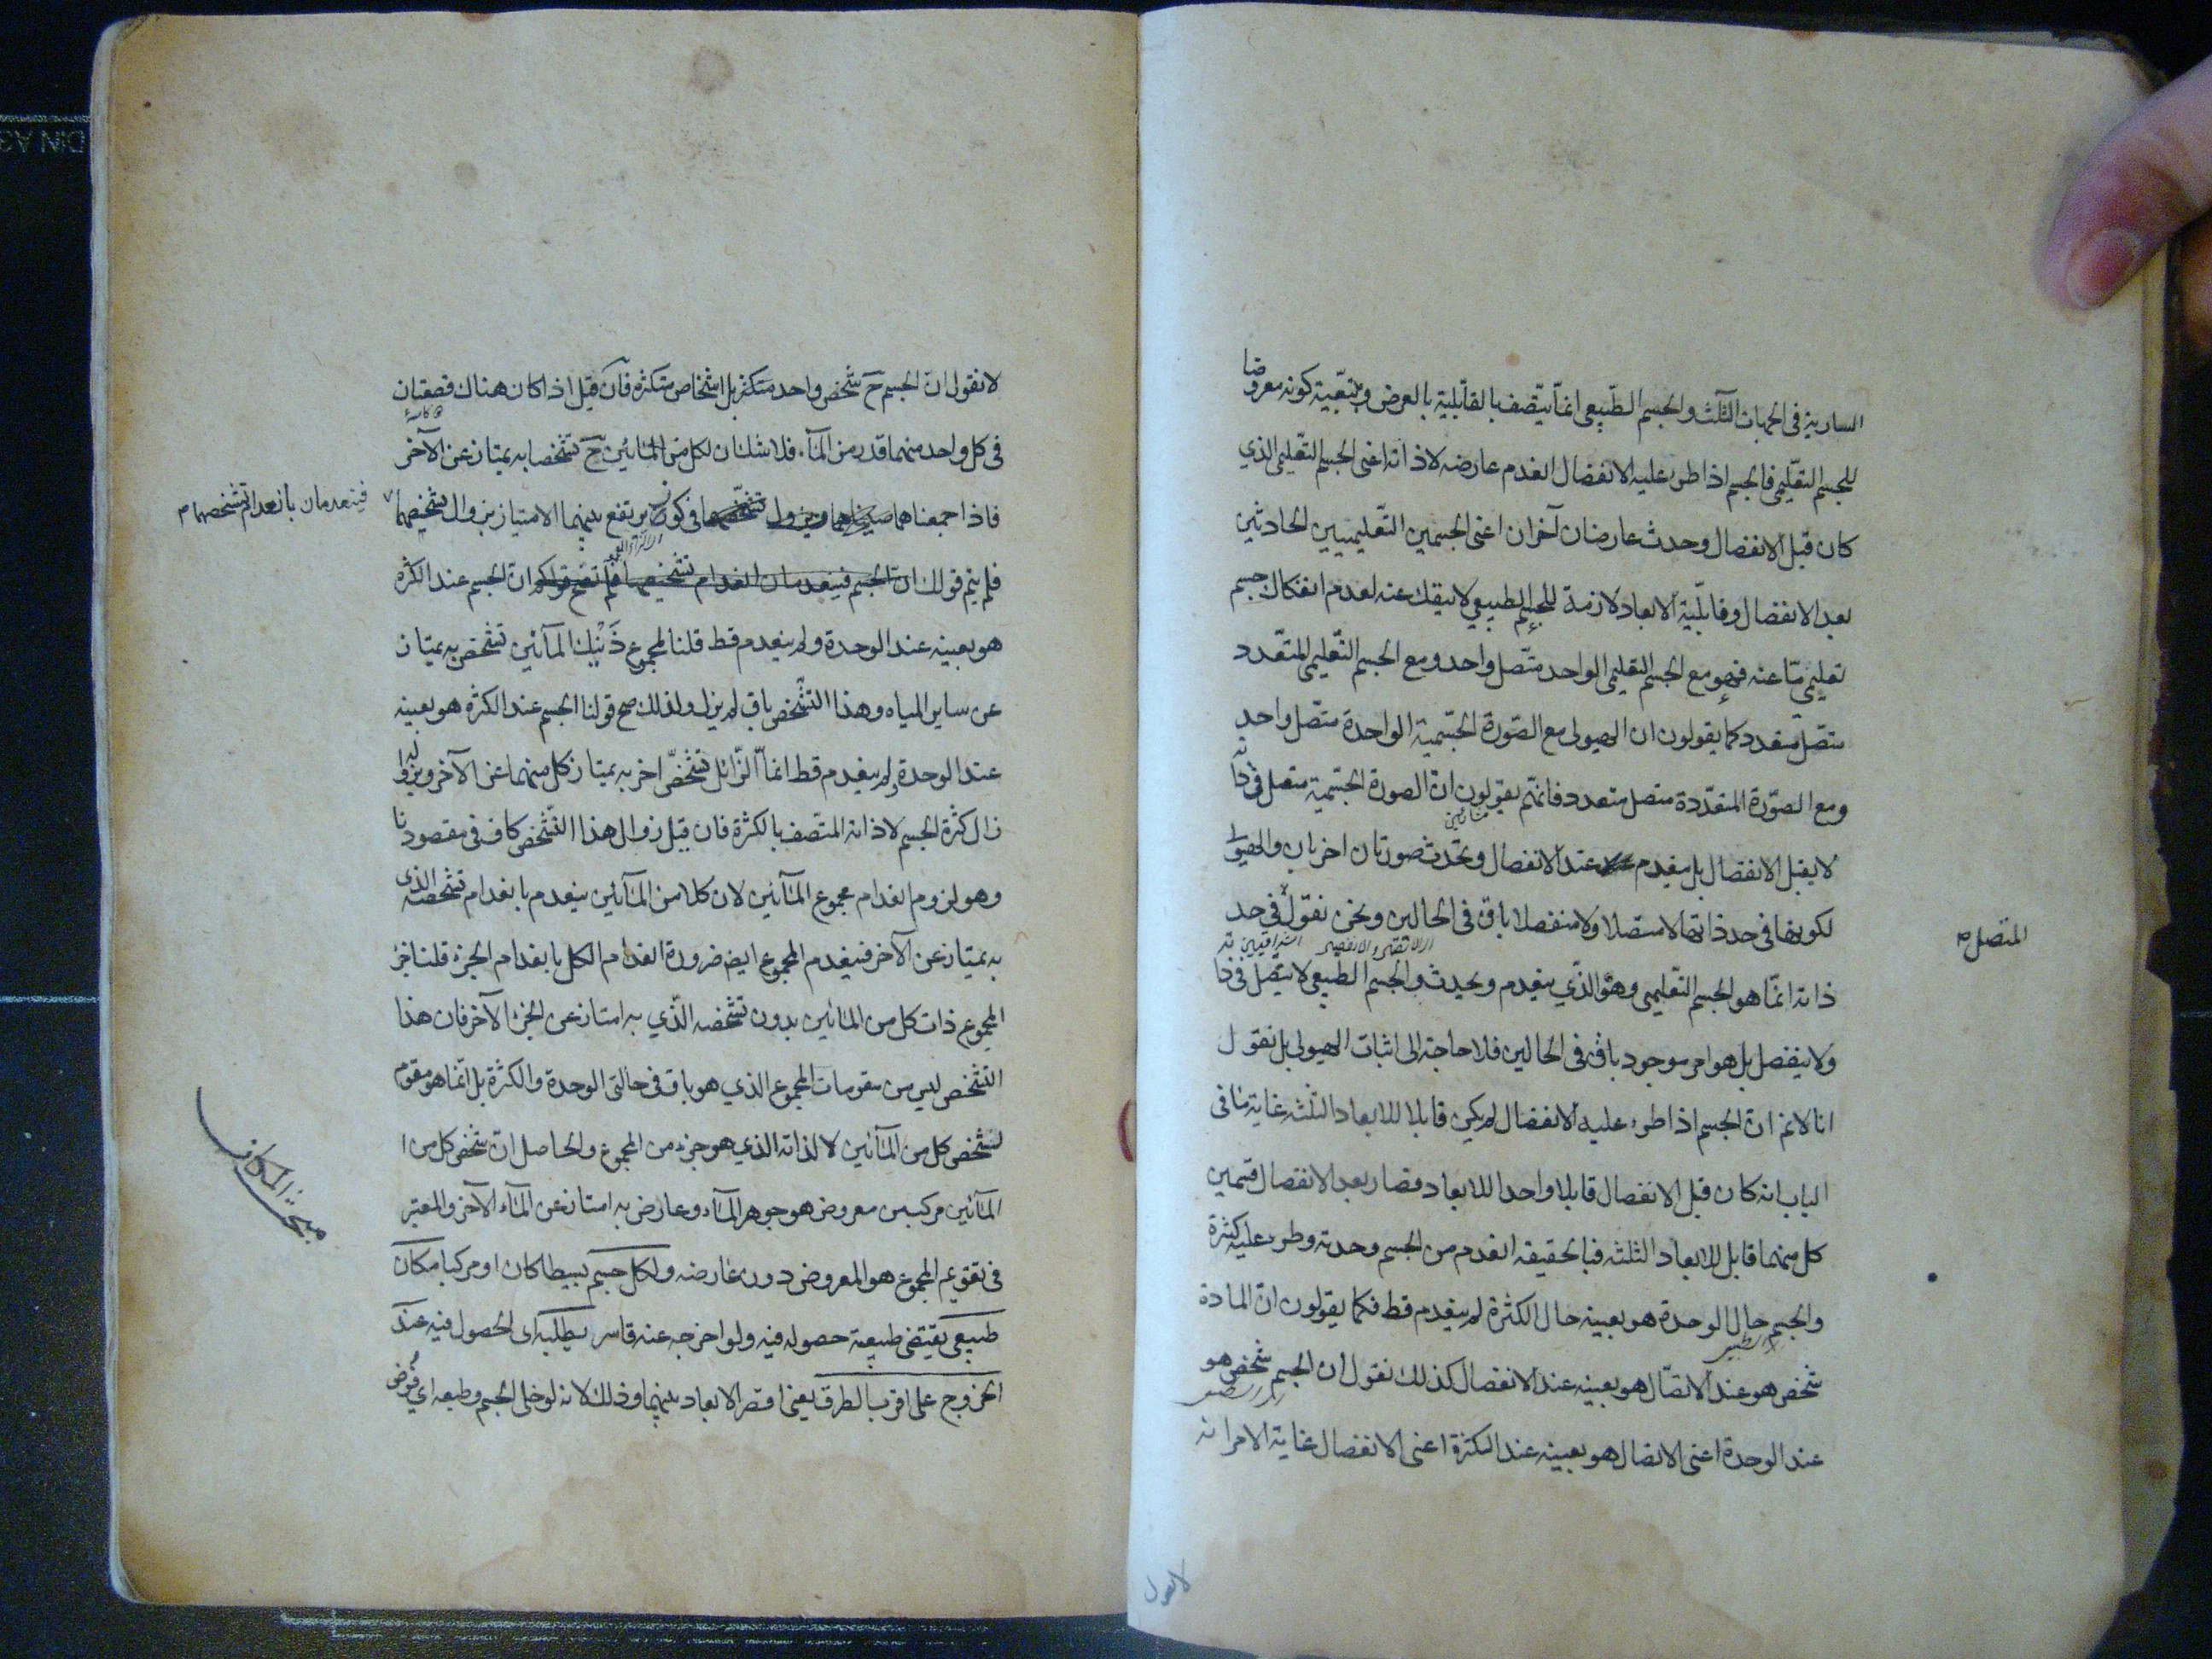 السارية في الجهات الثلث والجسم الطبيعي انما يتصف بالقابلية بالعرض وبتبعية كونه معروضا
للجسم التعليمي فالجسم اذا طرء عليه الانفصال انعدم عارضه لا ذاته اعني الجسم التعليمي الذي
كان قبل الانفصال وحدث عارضان آخران اعني الجسمين التعليميين الحادثين
بعد الانفصال وقابلية الابعاد لازمة للجسم الطبيعي لا ينفك عنه لعدم انفكاك جسم
تعليمي ما عنه فهو مع الجسم التعليمي الواحد متصل واحد ومع الجسم التعليمي المتعدد
متصل متعدد كما يقولون ان الهيولى مع الصورة الجسمية الواحدة متصل واحد
ومع الصورة المتعددة متصل متعدد فانهم يقولون ان الصورة الجسمية متصل في ذاته
لا يقبل الانفصال بل ينعدم عند الانفصال وتحدث صورتان اخريان والهيولى
لكونها في حد ذاتها لا متصلا ولا منفصلا باق في الحالين ونحن نقول في حد
المتصل
ذاته انما هو الجسم التعليمي وهو الذي ينعدم ويحدث والجسم الطبيعي لا يتصل في ذاته
ولا ينفصل بل هو امر موجود باق في الحالين فلا حاجة الى اثبات الهيولى بل نقول
انا لا نم ان الجسم اذا طرء عليه الانفصال لم يكن قابلا للابعاد الثلثه غاية ما في
الباب انه كان قبل الانفصال قابلا واحدا للابعاد فصار بعد الانفصال قسمين
كل منهما قابل للابعاد الثلثه فبالحقيقه انعدم من الجسم وحدته وطرء عليه كثرة
والجسم حال الوحدة هو بعينه حال الكثرة لم ينعدم قط فكما يقولون ان المادة
شخص هو عند الاتصال هو بعينه عند الانفصال كذلك نقول ان الجسم شخص هو
عند الوحدة اعني الاتصال هو بعينه عند الكثرة اعني الانفصال غاية الامر انه
لا نقول
لا نقول ان الجسم ح شخص واحد متكثر بل اشخاص متكثره فان قيل اذا كان هناك قصعتان
في كل واحد منهما قدر من الماء فلا شك ان لكل من المائين ح تشخصا به يمتاز عن الآخر
فاذا جمعناهما في كوز يرتفع بينهما الامتياز بزوال تشخصهما
فينعدمان بانعدام تشخصهما
فلم يتم قولك ان الجسم فينعدمان انعدام تشخصهما فلم تصح قولكم ان الجسم عند الكثرة
هو بعينه عند الوحدة ولم ينعدم قط قلنا لمجموع ذينك المائين تشخص به يمتاز
عن ساير المياه وهذا التشخص باق لم يزل ولذلك صح قولنا الجسم عند الكثرة هو بعينه
عند الوحدة ولم ينعدم قط انما الزائل تشخص اخر به يمتاز كل منهما عن الآخر وبزواله
زال كثرة الجسم لا ذاته المتصف بالكثرة فان قيل زوال هذا التشخص كاف في مقصودنا
وهو لزوم انعدام مجموع المائين لان كلا من المائين ينعدم بانعدام تشخصه الذي
به يمتاز عن الآخر فينعدم المجموع ايض ضرورة انعدام الكل بانعدام الجزء قلنا جزء
المجموع ذات كل من المائين بدون تشخصه الذي به امتاز عن الجزء الآخر فان هذا
التشخص ليس من مقومات المجموع الذي هو باق في حالتي الوحدة والكثرة بل انما هو مقوم
لشخص كل من المائين لا لذاته الذي هو جزء من المجموع والحاصل ان شخص كل من ا
المائين مركب من معروض هو جوهر الماء وعارض به امتاز عن الماء الآخر والمعتبر
في تقويم المجموع هو المعروض دون عارضه ولكل جسم بسيطا كان او مركبا مكان
مبحث المكان
طبيعي يقتضي طبيعة حصوله فيه ولو اخرجه عنه قاسر يطلبه اى الحصول فيه عند
الخروج على اقرب الطرق يعني اقصر الابعاد بينهما وذلك لانه لو خلى الجسم وطبعه اي فرض